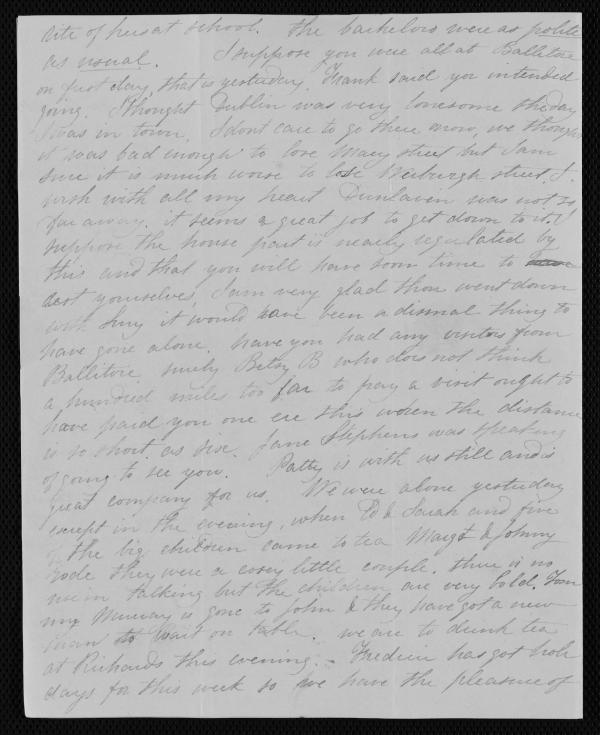 rite of hers at school. The bachelors were as polite
as usual. I suppose you were all at Ballitore
on first day, that is yesterday. Frank said you intended
going. I thought Dublin was very lonesome the day
I was in town, I dont care to go there now, we thought
it was bad enough to lose Mary street but I am
sure it is much worse to lose Werburgh street. I
wish with all my heart Dunlavin was not so
far away. it seems a great job to get down to it. I
suppose the house part is nearly regulated by
this and that you will have soon time to
rest yourselves, I am very glad thou went down
with it would have been a dismal thing to
have gone alone. have you had any visitors from
Ballitore. surely Betsy B who does not think
a hundred miles too far to pay a visit ought to
have paid you one ere this when the distance
is so short as Jane Stephens was speaking
of going to see you. Patty is with us still and is
great company for us. We were alone yesterday
except in the evening, when Ed & Sarah and five
of the big children came to tea Margt & Johnny
rode they were a cosey little couple. there is no
use in talking but the children are very bold. Tom
my Murray is gone to John & they have got a new
man to wait on table. we are to drink tea
at Richards this evening. - has got holi
days for this week so we have the pleasure of